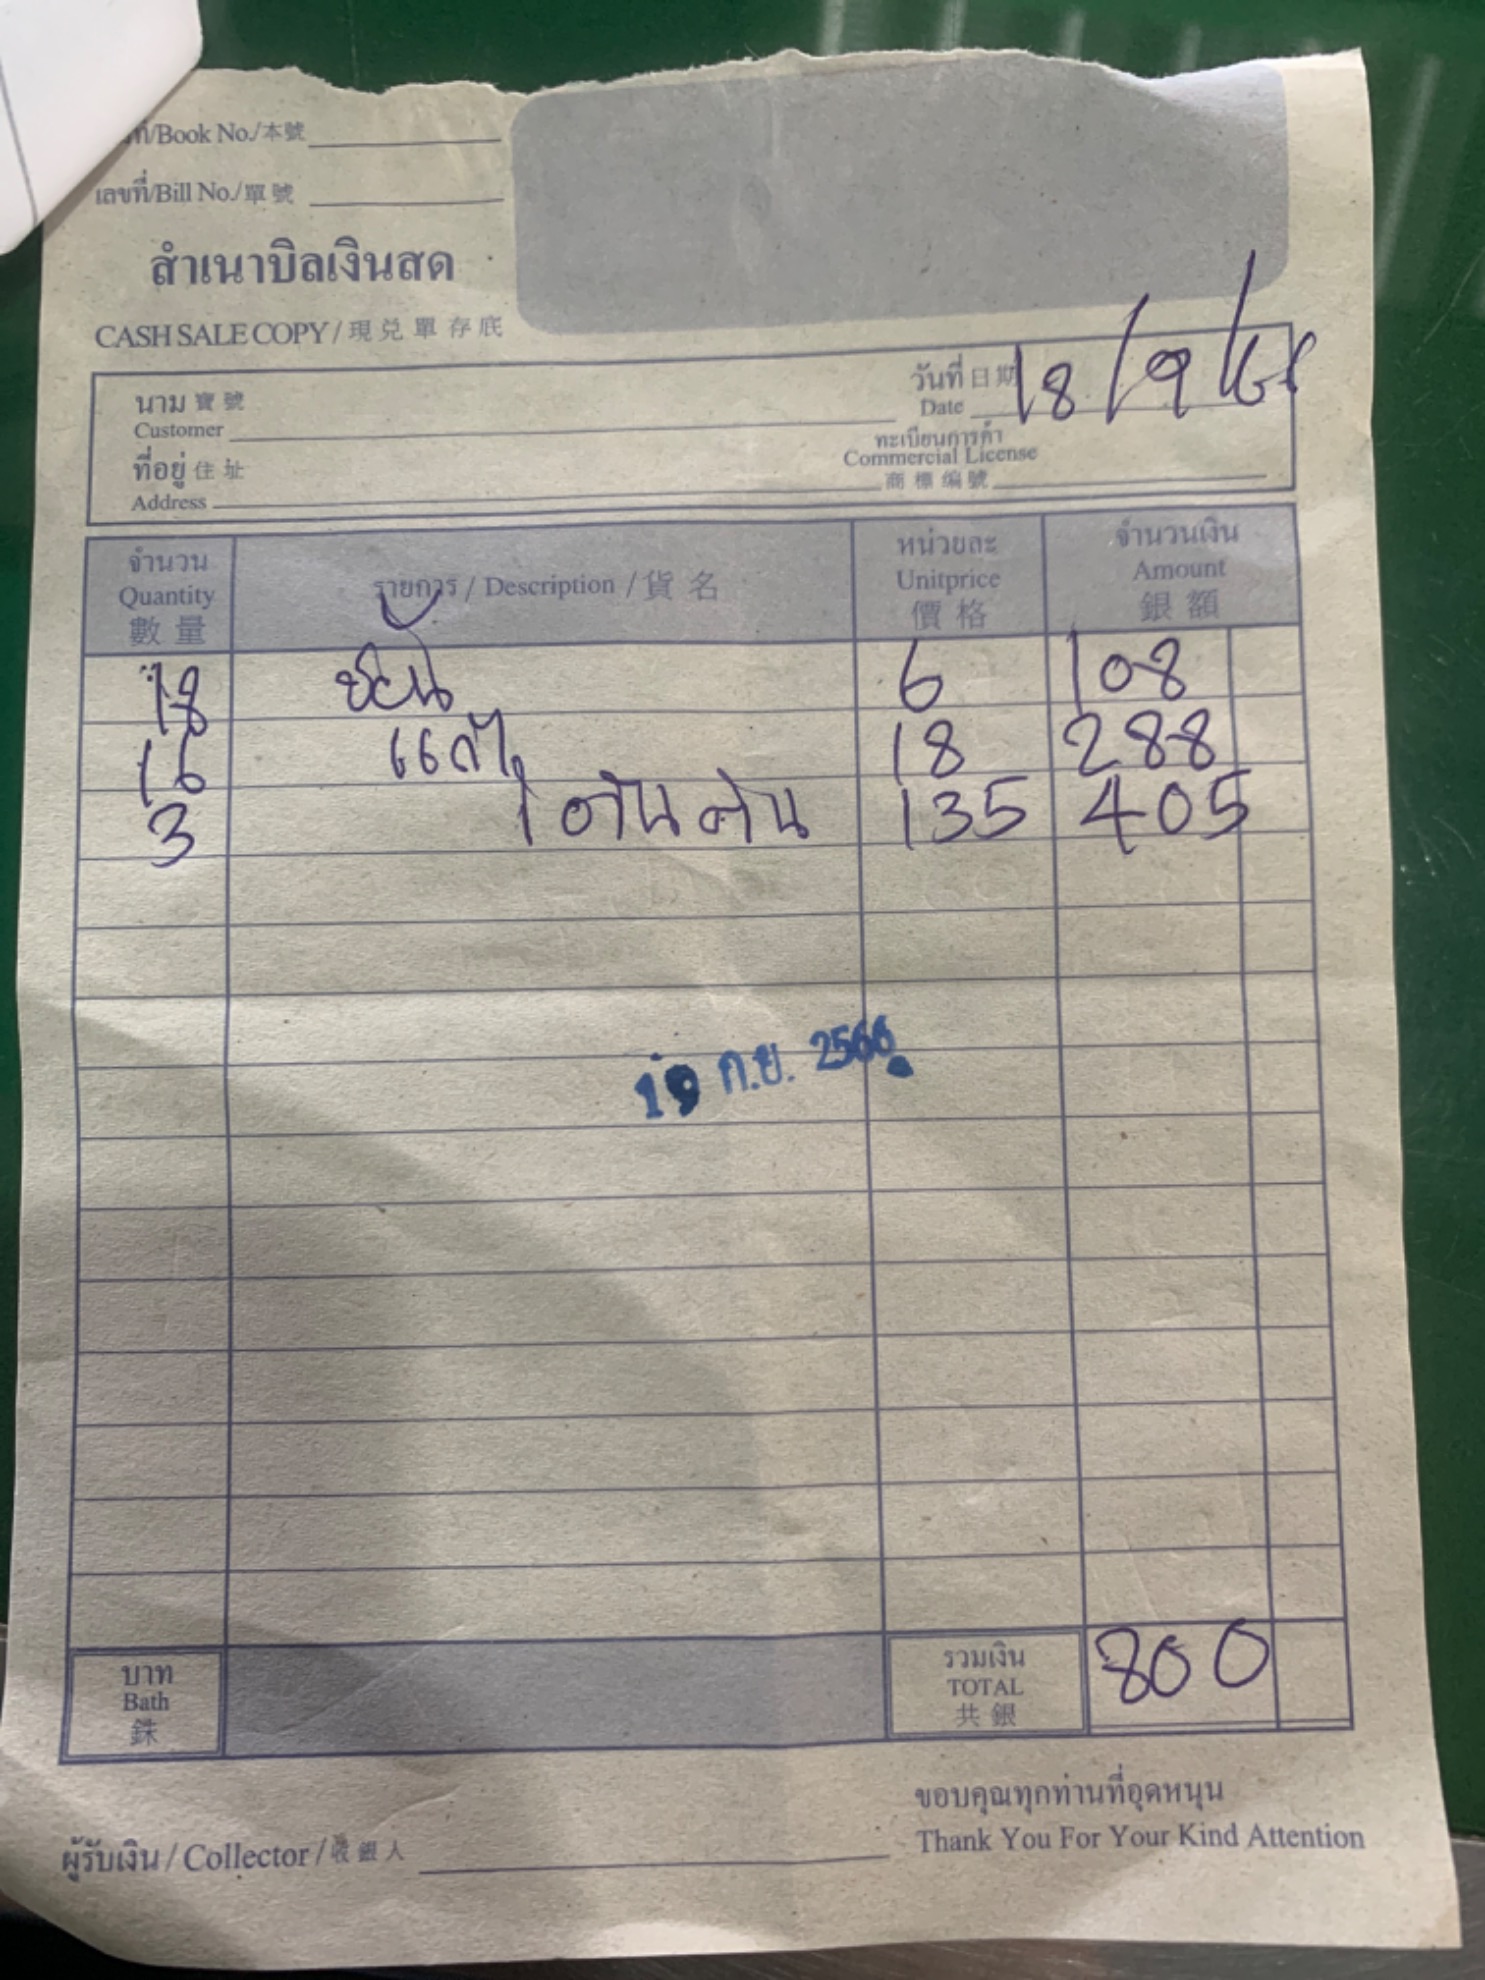 ที่/Book No./本號
เลขที่/Bill No./單號
สำเนาบิลเงินสด
CASH SALE COPY / 現兌單存底
นาม 寶號
Customer
วันที่ 日期
Date 18/9/
ที่อยู่ 住址
Address
ทะเบียนการค้า
Commercial License
商標編號
จำนวน
Quantity
數量
รายการ / Description / 貨名
หน่วยละ
Unitprice
價格
จำนวนเงิน
Amount
銀額
18 6 108
16 18 288
3 135 405
19 ก.ย. 2566
บาท
Bath
銖
รวมเงิน
TOTAL
共銀
800
ขอบคุณทุกท่านที่อุดหนุน
Thank You For Your Kind Attention
ผู้รับเงิน / Collector / 收銀人